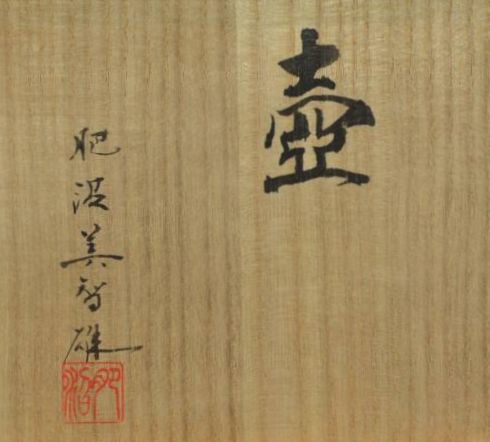 壺
肥沼美智雄